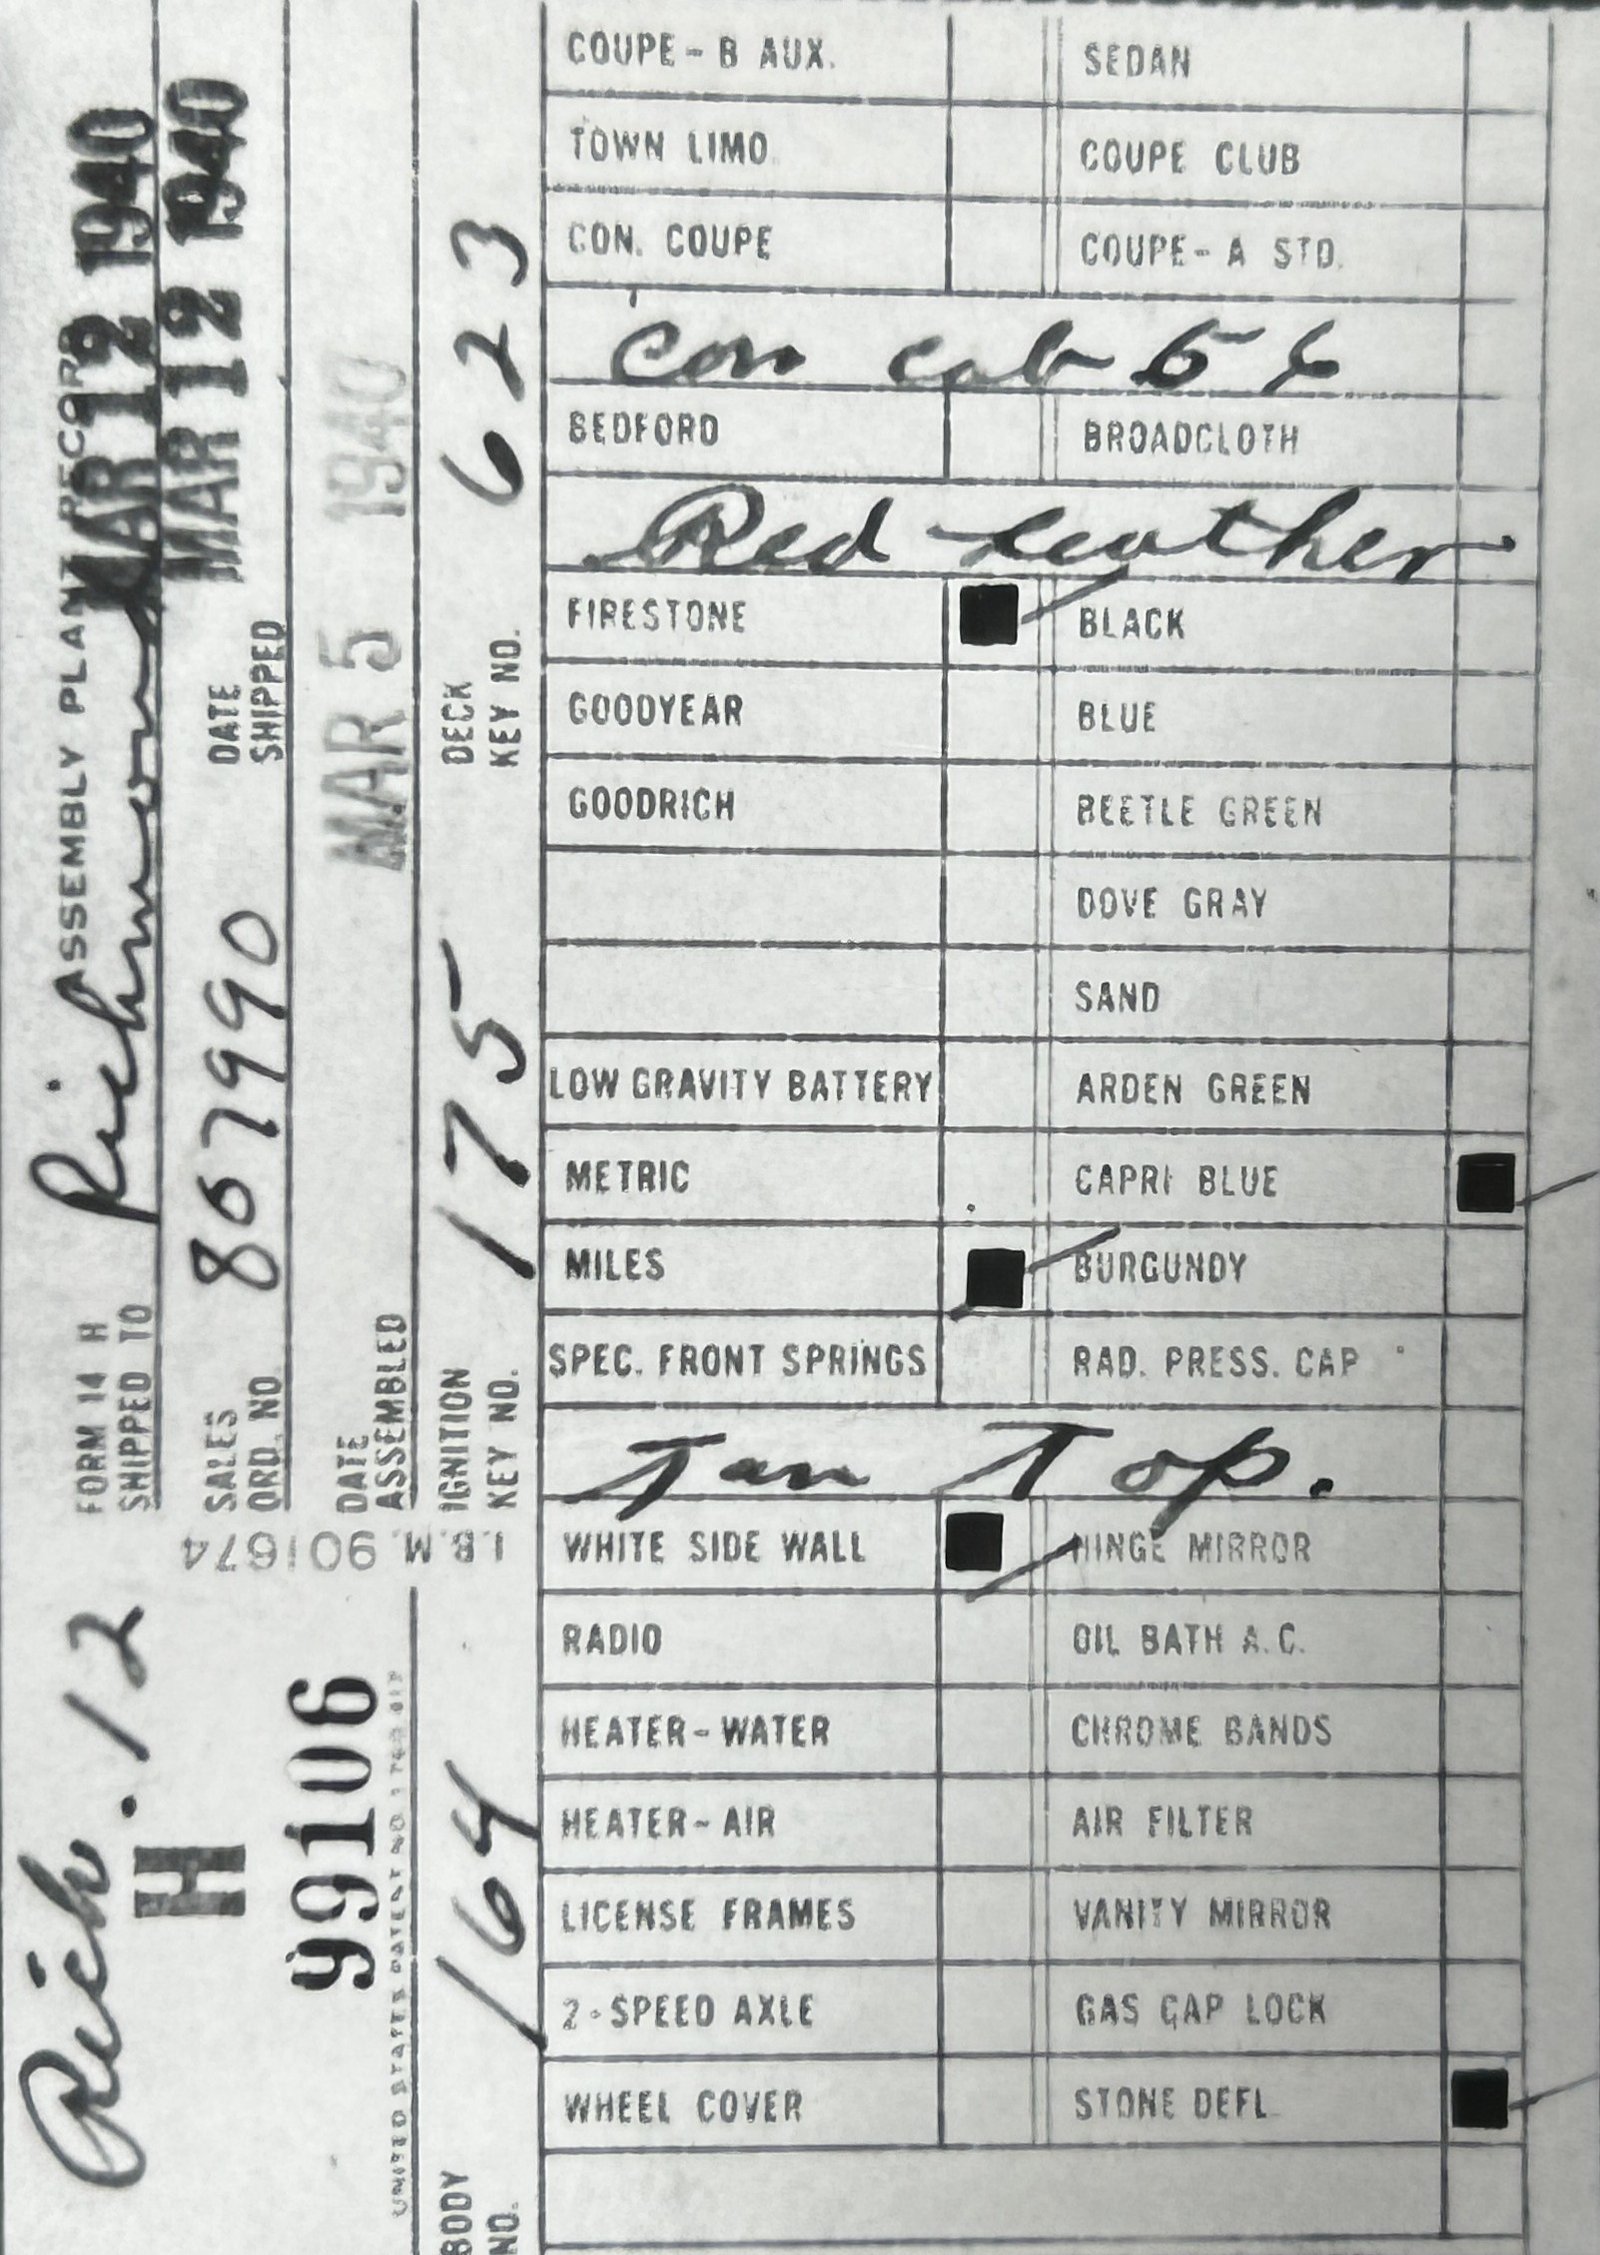 COUPE - B AUX. SEDAN
TOWN LIMO. COUPE CLUB
CON. COUPE COUPE - A STD.
Con cab 56
BEDFORD BROADCLOTH
Red Leather
FIRESTONE BLACK
GOODYEAR BLUE
GOODRICH BEETLE GREEN
DOVE GRAY
SAND
LOW GRAVITY BATTERY ARDEN GREEN
METRIC CAPRI BLUE
MILES BURGUNDY
SPEC. FRONT SPRINGS RAD. PRESS. CAP
Tan Top.
WHITE SIDE WALL HINGE MIRROR
RADIO OIL BATH A.C.
HEATER - WATER CHROME BANDS
HEATER - AIR AIR FILTER
LICENSE FRAMES VANITY MIRROR
2-SPEED AXLE GAS CAP LOCK
WHEEL COVER STONE DEFL.
Rich. 12
H
99106
FORM 14 H ASSEMBLY PLANT RECORD
SHIPPED TO Richmond MAR 12 1940
SALES ORD. NO. 807990 DATE SHIPPED MAR 12 1940
DATE ASSEMBLED MAR 5 1940
I.B.M. 901674
BODY NO. 164 IGNITION KEY NO. 175 DECK KEY NO. 623